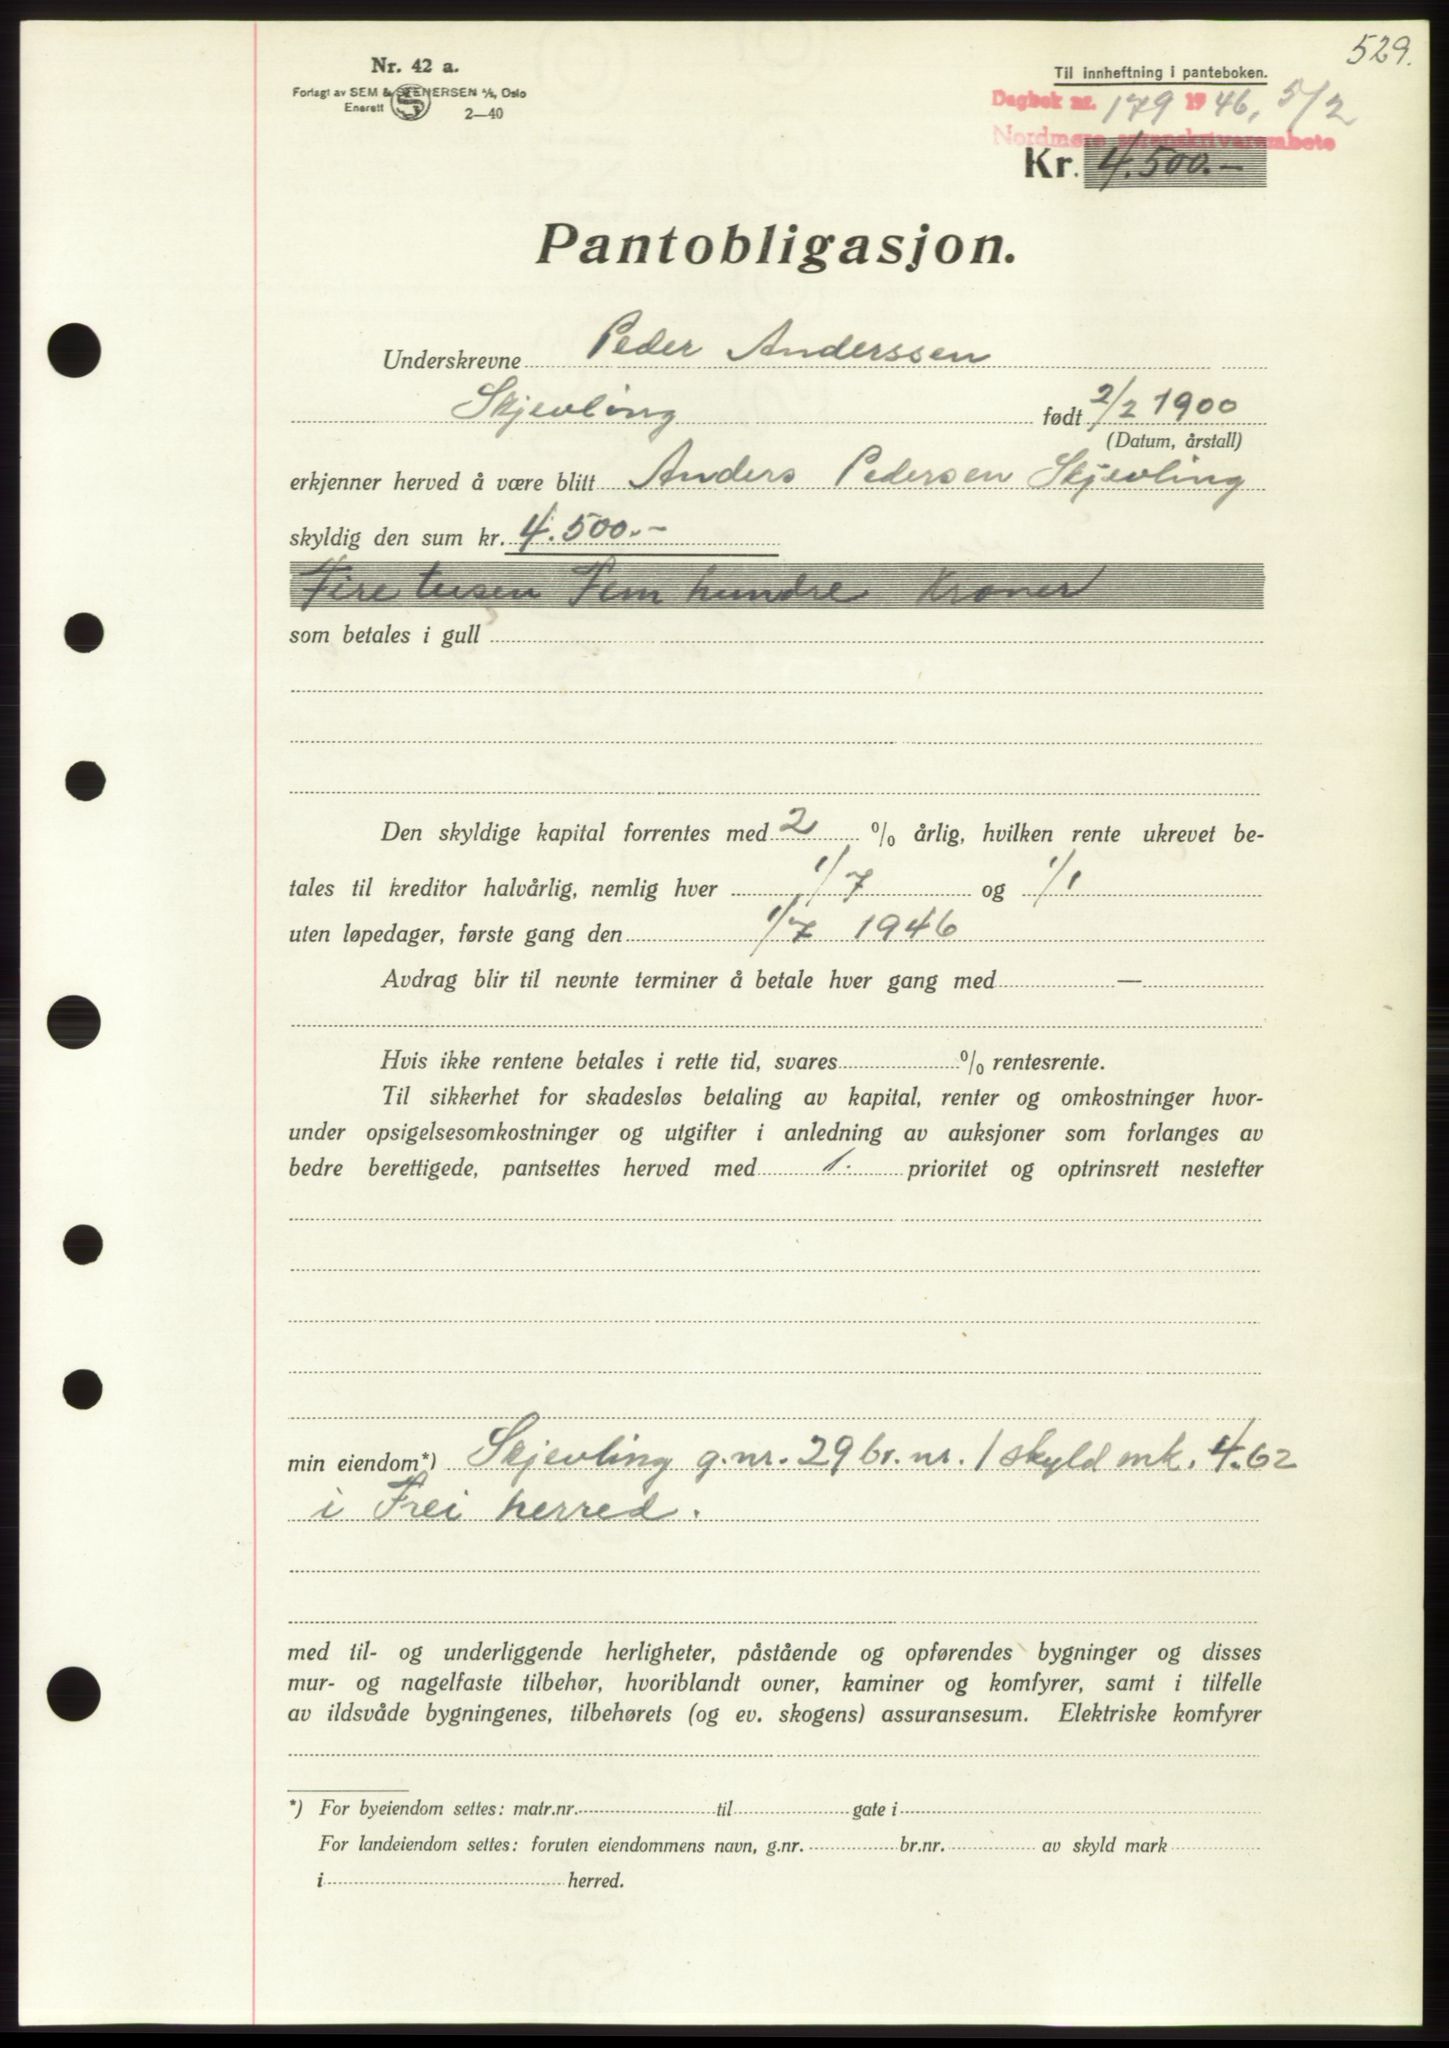 529.
Nr. 42 a.
Forlagt av SEM & STENERSEN A/S, Oslo
Enerett
2—40
Til innheftning i panteboken.
Dagbok nr. 179 1946, 5/2
Nordmøre sorenskrivarembete
Kr. 4.500.-
Pantobligasjon.
Underskrevne Peder Anderssen
Skjevling født 2/2 1900
(Datum, årstall)
erkjenner herved å være blitt Anders Pedersen Skjevling
skyldig den sum kr. 4.500.-
Fire tusen Fem hundre Kroner
som betales i gull
Den skyldige kapital forrentes med 2 % årlig, hvilken rente ukrevet be-
tales til kreditor halvårlig, nemlig hver 1/7 og 1/1
uten løpedager, første gang den 1/7 1946
Avdrag blir til nevnte terminer å betale hver gang med —
Hvis ikke rentene betales i rette tid, svares % rentesrente.
Til sikkerhet for skadesløs betaling av kapital, renter og omkostninger hvor-
under opsigelsesomkostninger og utgifter i anledning av auksjoner som forlanges av
bedre berettigede, pantsettes herved med 1. prioritet og optrinsrett nestefter
min eiendom*) Skjevling g.nr. 29 br.nr. 1 skyld mk. 4.62
i Frei herred.
med til- og underliggende herligheter, påstående og opførendes bygninger og disses
mur- og nagelfaste tilbehør, hvoriblandt ovner, kaminer og komfyrer, samt i tilfelle
av ildsvåde bygningenes, tilbehørets (og ev. skogens) assuransesum. Elektriske komfyrer
*) For byeiendom settes: matr.nr. til gate i
For landeiendom settes: foruten eiendommens navn, g.nr. br.nr. av skyld mark
i herred.